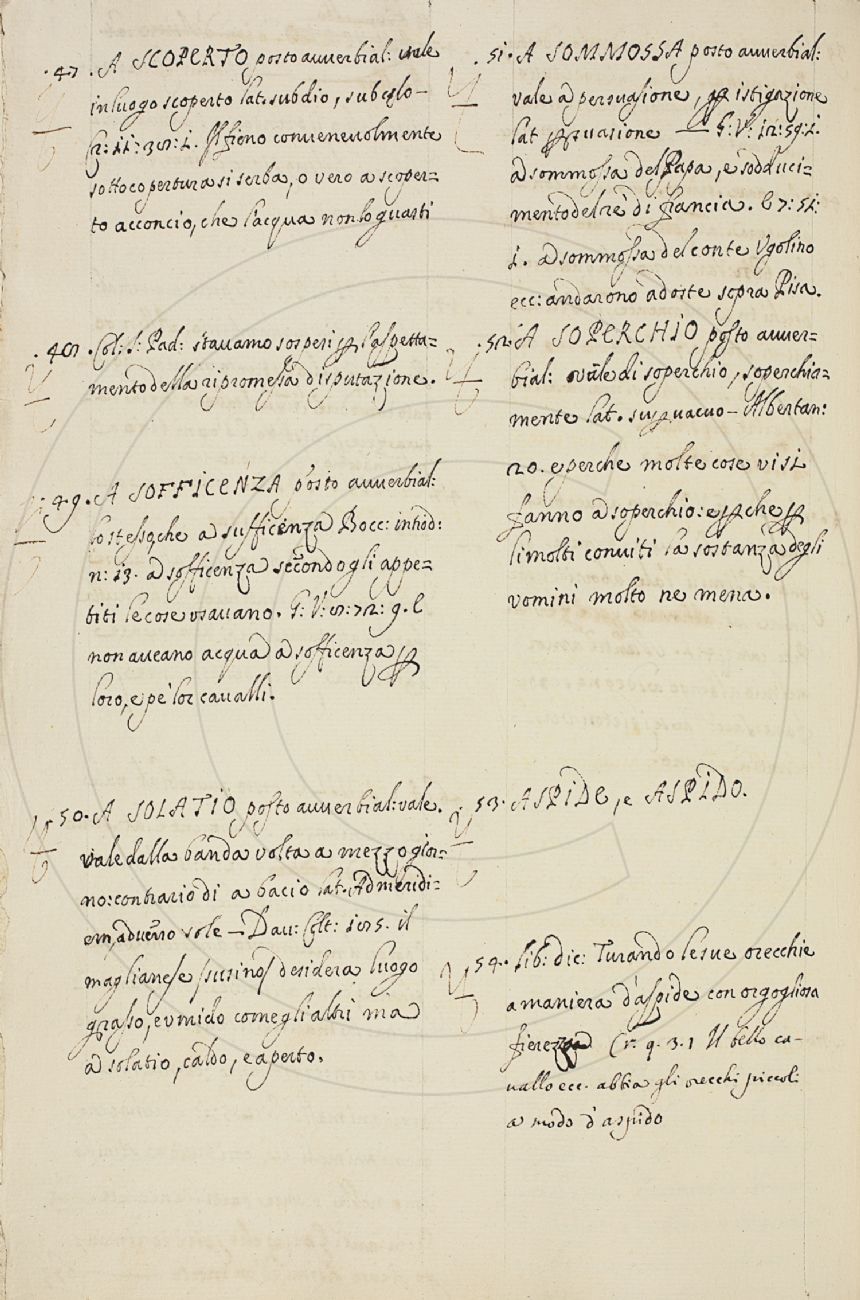 .47. A SCOPERTO posto avverbial: vale
in luogo scoperto lat. subdio, sub cęlo –
Cr: 11: 38: 1. Il fieno convenevolmente
sotto copertura si serba, o vero a scoper=
to acconcio, che l'acqua non lo guasti
.48. Col: S: Pad: stavamo sospesi ꝑ l'aspetta=
mento della ripromessa disputazione.
49. A SOFFICENZA posto avverbial:
lo stesso, che a sufficenza Bocc: introd:
n: 13. a sofficenza secondo gli appe=
titi le cose usavano. G: V: 8: 72: 9. E
non aveano acqua a sofficenza ꝑ
loro, e pe' lor cavalli.
50. A SOLATIO posto avverbial: vale.
vale dalla banda volta a mezzo gior=
no: contrario di a bacio lat. Ad meridi=
em, adverso sole – Dav: Colt: 185. il
maglianese /susino/ desidera luogo
grasso, e umido come gli altri ma
a solatio, caldo, e aperto.
.51. A SOMMOSSA posto avverbial:
vale a persuasione, ꝑ istigazione
lat ꝑsuasione — G: V: 12: 59: 1.
a sommossa del Papa, e sodduci=
mento del rè di francia. E 7: 51:
1. a sommossa del conte Ugolino
ecc: andarono a doste sopra Pisa.
.52. A SOPERCHIO posto avver=
bial: vale di soperchio, soperchia=
mente lat. supvacuo – Albertan:
20. e perche molte cose visi
fanno a soperchio: e ꝑche ꝑ
li molti conviti la sostanza degli
uomini molto ne mena.
53. ASPIDE, e ASPIDO.
54. Lib: dic: Turando le sue orecchie
a maniera d'aspide con orgogliosa
fierezza Cr. 9. 3. 1 Il bello ca–
vallo ecc. abbia gli orecchi piccoli
a modo d'aspido